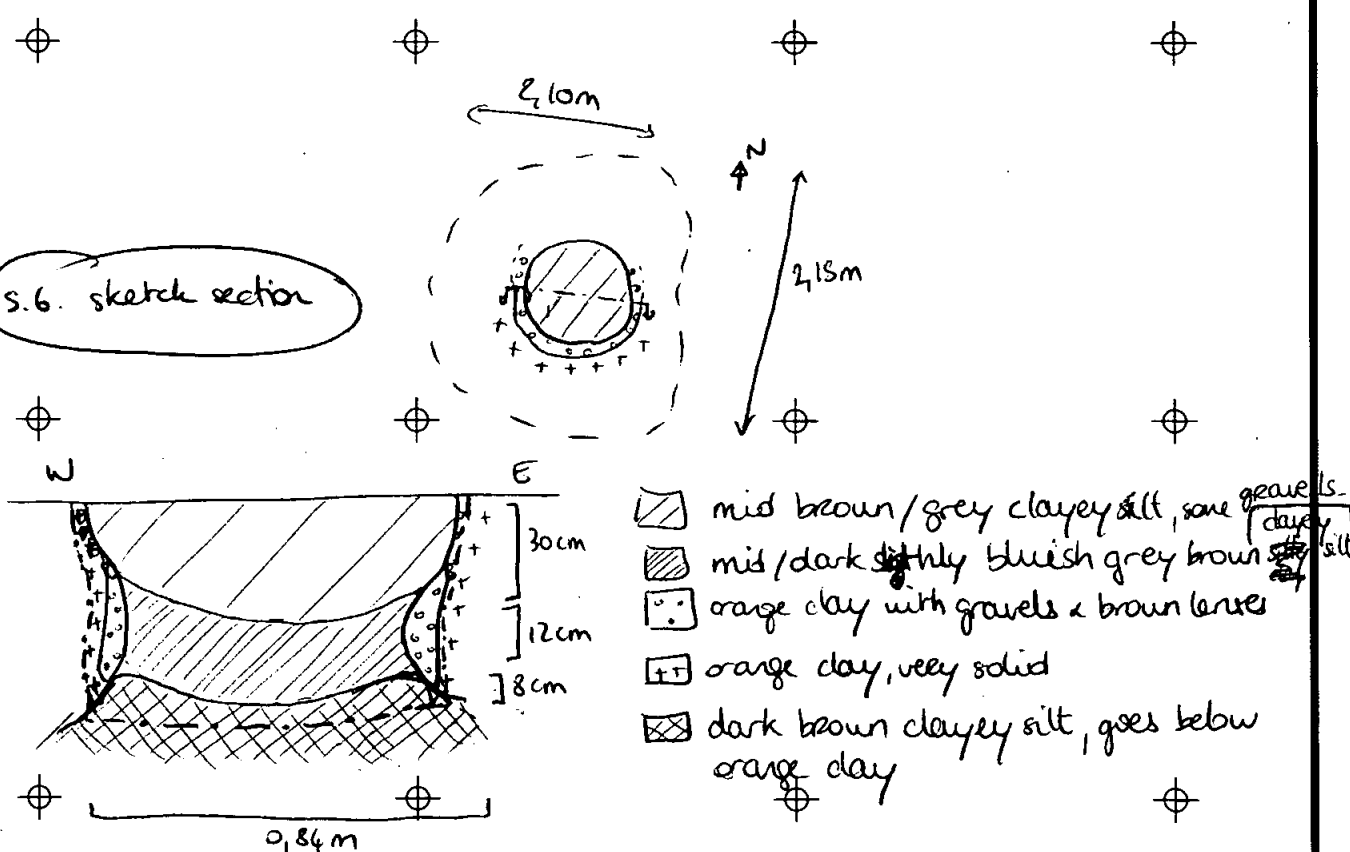 2,10m
N
2,15m
S.6. sketch section
W
E
30cm
12cm
8cm
0,84m
mid brown/grey clayey silt, some gravels
mid/dark slighly bluish grey brown clayey silt
orange clay with gravels & brown lenses
orange clay, very solid
dark brown clayey silt, goes below
orange clay